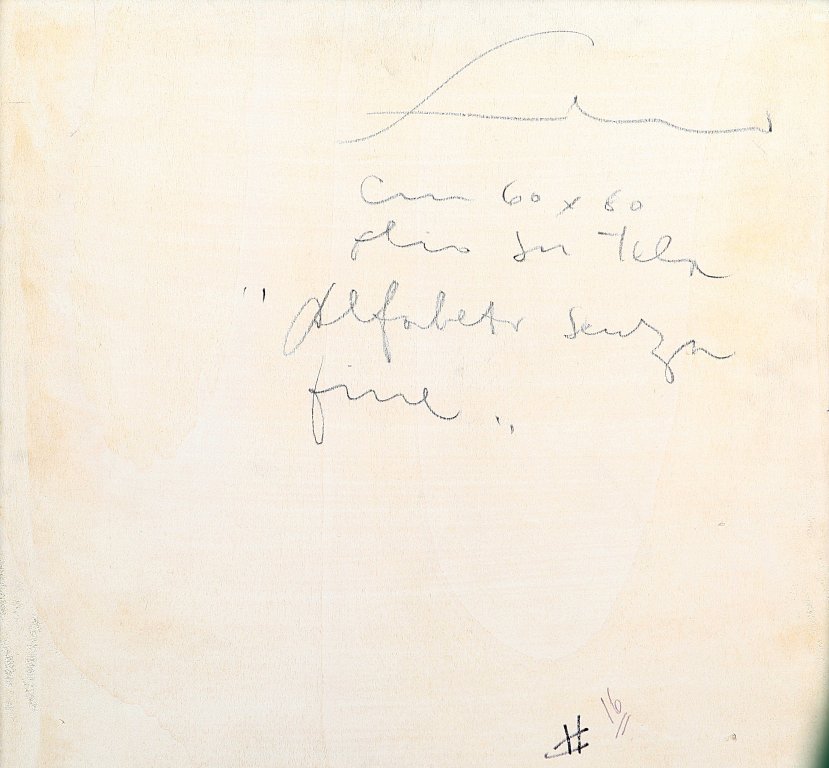 cm 60 x 80
olio su tela
"Alfabeto senza
fine"
16